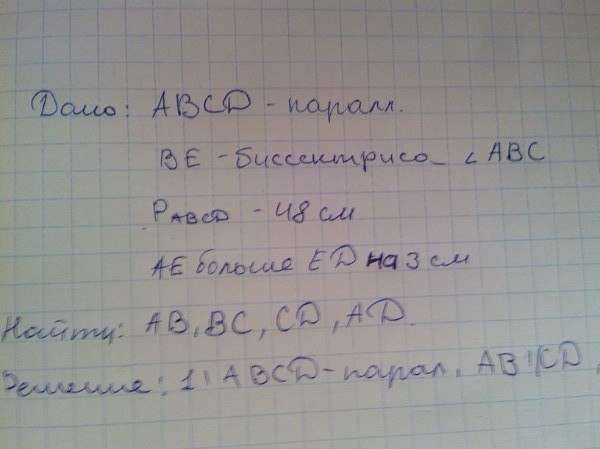 Дано: ABCD - паралл.
BE - биссектриса ∠ ABC
PABCD - 48 см
AE больше ED на 3 см
Найти: AB, BC, CD, AD.
Решение: 1) ABCD - парал. AB || CD,